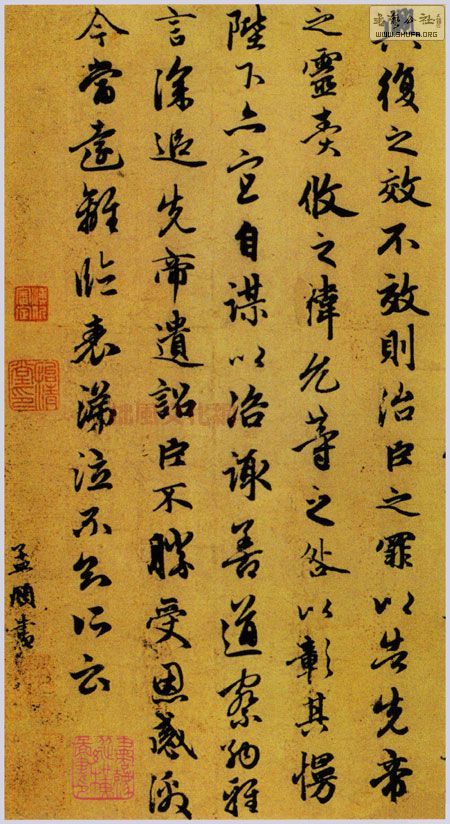 興復之效不效則治臣之罪以告先帝
之靈責攸之偉允等之咎以彰其慢
陛下亦宜自謀以咨諏善道察納雅
言深追先帝遺詔臣不勝受恩感激
今當遠離臨表涕泣不知所云
孟頫書
书艺公社
WWW.SHUFA.ORG